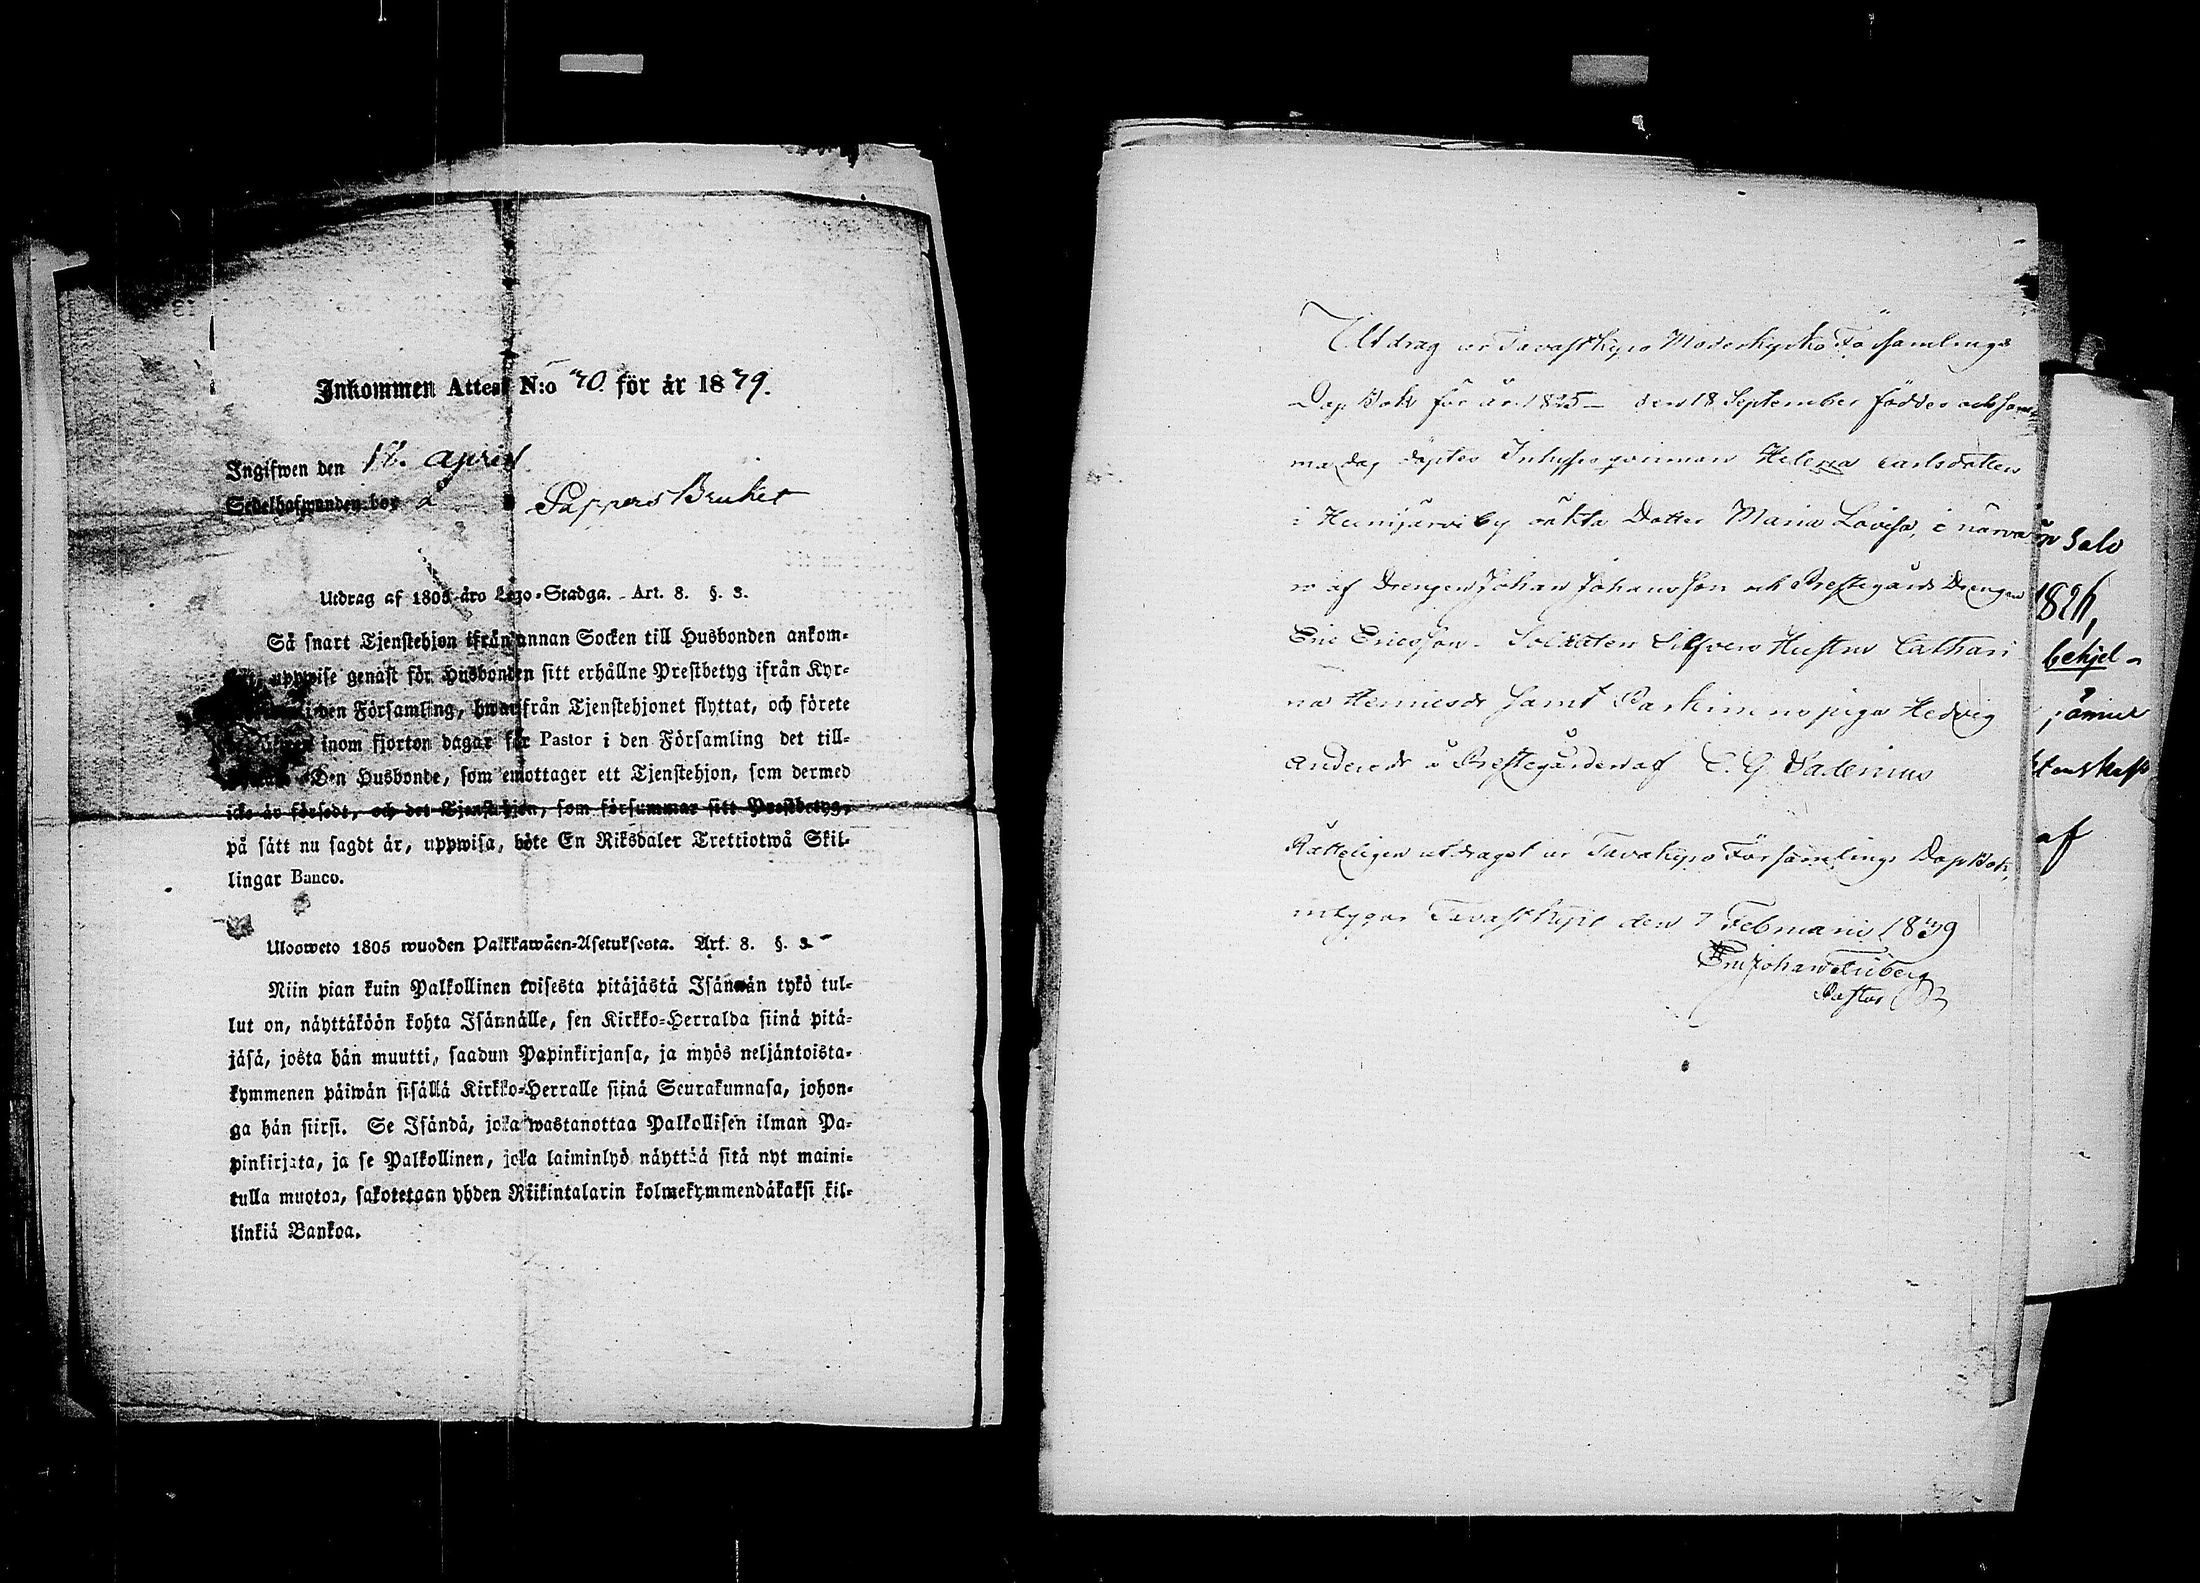 Inkommen Attest N:o 70 för år 1839.
Ingifwen den 18. april
Sedelhafwanden bor å Sappers Bruket
Utdrag af 1805 åro Lego-Stadga. Art. 8. §. 3.
Så snart Tjenstehjon ifrån annan Socken till Husbonden ankom-
uppwise genast för Husbonden sitt erhållne Prestbetyg ifrån Kyr-
i den Församling, hwarifrån Tjenstehjonet flyttat, och förete
inom fjorton dagar för Pastor i den Församling det till-
Den Husbonde, som emottager ett Tjenstehjon, som dermed
icke är försedt, och det Tjenstehjon, som försummar sitt Prestbetyg,
på sätt nu sagdt är, uppwisa, böte En Riksdaler Trettiotwå Skil-
lingar Banco.
Ulosweto 1805 wuoden Palkkawäen-Asetuksesta. Art. 8. §. 3.
Niin pian kuin Palkollinen toisesta pitäjästä Isännän tykö tul-
lut on, näyttäköön kohta Isännälle, sen Kirkko-Herralda siinä pitä-
jäsä, josta hän muutti, saadun Papinkirjansa, ja myös neljäntoista-
kymmenen päiwän sisällä Kirkko-Herralle siinä Seurakunnasa, johon-
ga hän siirsi. Se Isändä, joka wastanottaa Palkollisen ilman Pa-
pinkirjata, ja se Palkollinen, joka laiminlyö näyttää sitä nyt maini-
tulla muotoa, sakotetaan yhden Riikintalarin kolmekymmendäkaksi kil-
linkiä Bankoa.
Utdrag ur Tavastkyro Moderkyrko Församlings
Dop Bok för år 1825 – den 18 September föddes och sam-
ma dag döptes Inhysesqvinnan Helena Carlsdotters
i Heinijärvi by oäkta Dotter Maria Lovisa, i närva
ro af Drengen Johan Johansson och Prestegårds Drengen
Eric Ericsson. Soldaten Silfvers Hustru Cathari
na Henricsdr samt Parkimus piga Hedvig
Andersdr i Prestegården af C. G. Vadenius
Rätteligen utdraget ur Tavastkyro Församlings Dop Bok,
intygar Tavastkyro den 7 Februarii 1839
Eric Johan Friberg
Pastor
Salo
1826,
behjel-
tenskaps
af